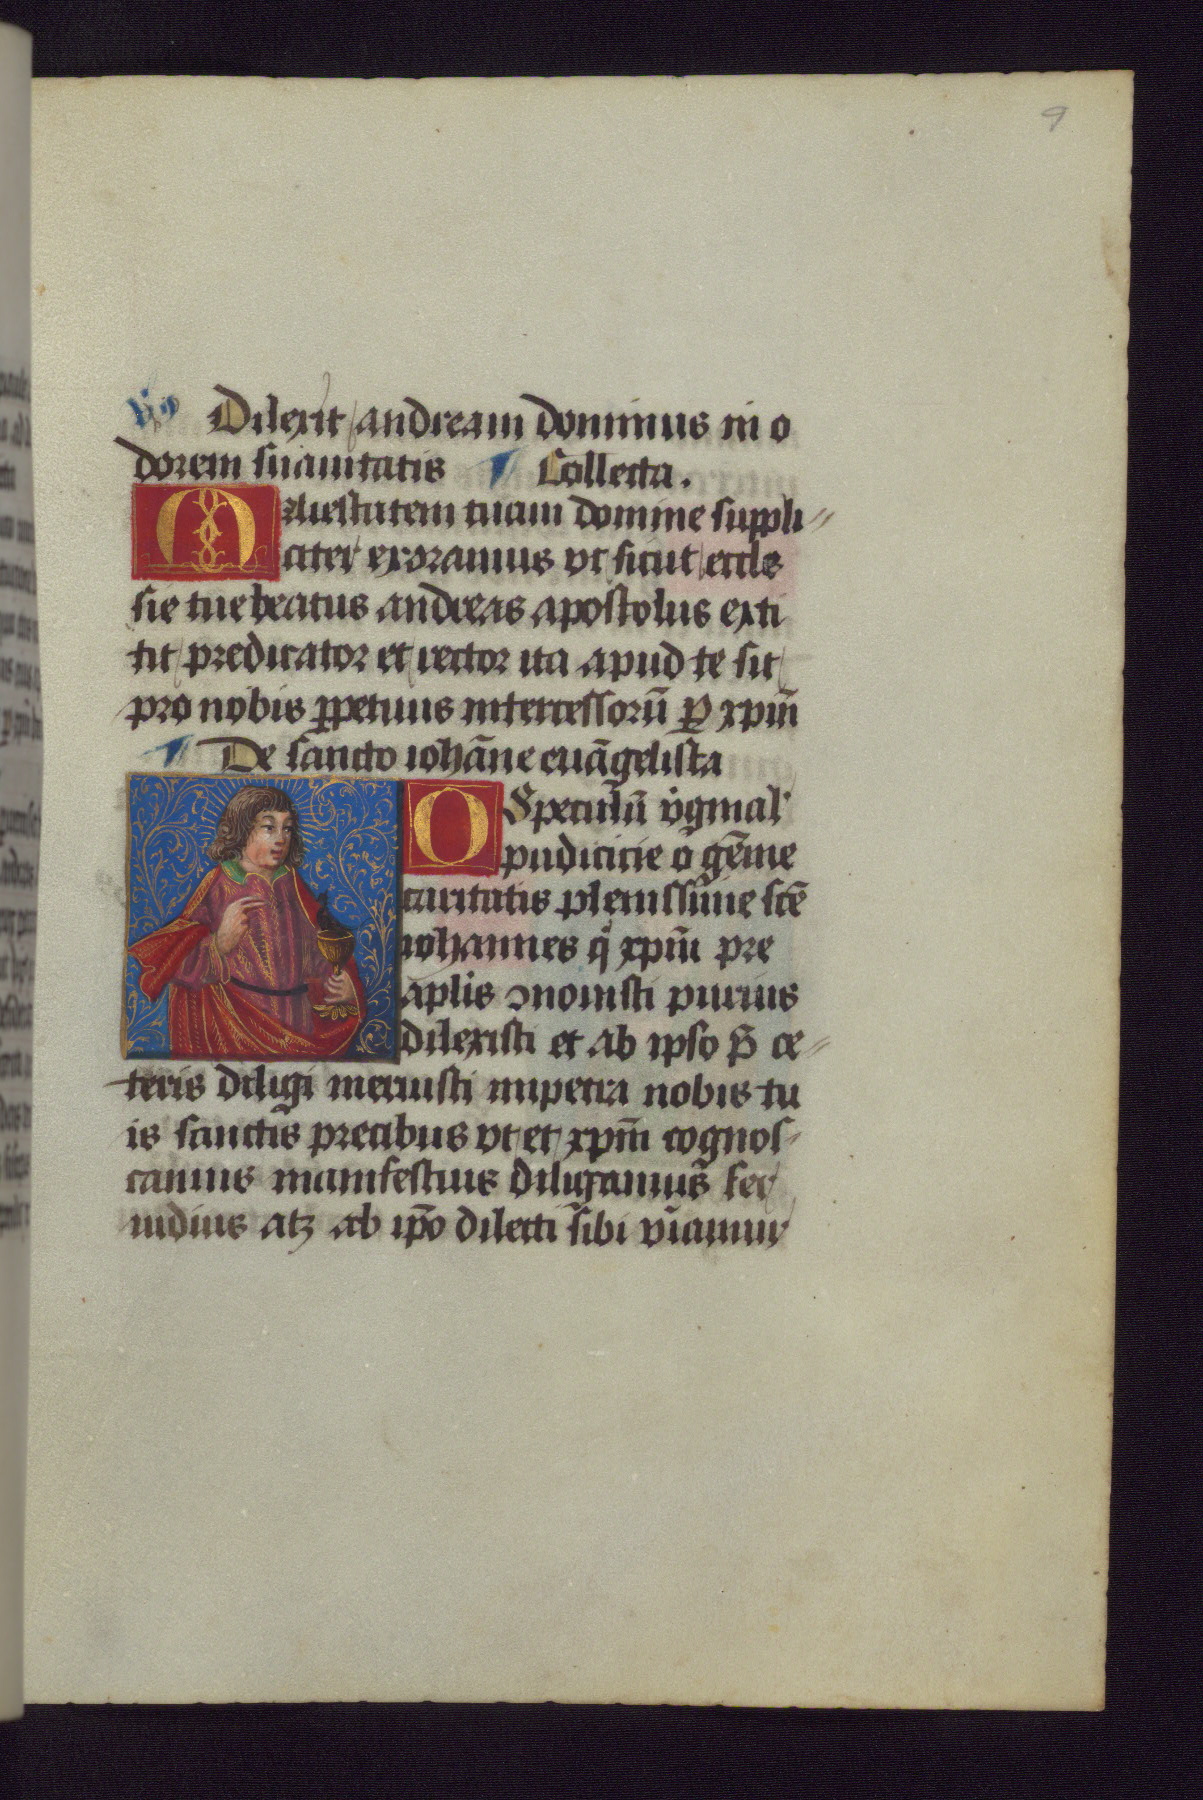 9
Vs Dilexit andream dominus in o
dorem suauitatis Collecta.
Maiestatem tuam domine suppli
citer exoramus vt sicut eccle
sie tue beatus andreas apostolus exti
tit predicator et rector ita apud te sit
pro nobis ꝑpetuus intercessorū ꝑ xpm̄
De sancto iohāne euāgelista
O Speculū v̄ginal'
pudicicie o gēme
caritatis plenissime scē
iohannes q̄ xpm̄ pre
aplis ɔnouisti purius
dilexisti et ab ipso p̄ ce
teris diligi meruisti impetra nobis tu
is sanctis precibus vt et xpm̄ cognos
camus manifestius diligamus fer
uidius atꝫ ab ip̄o dilecti sibi viamur